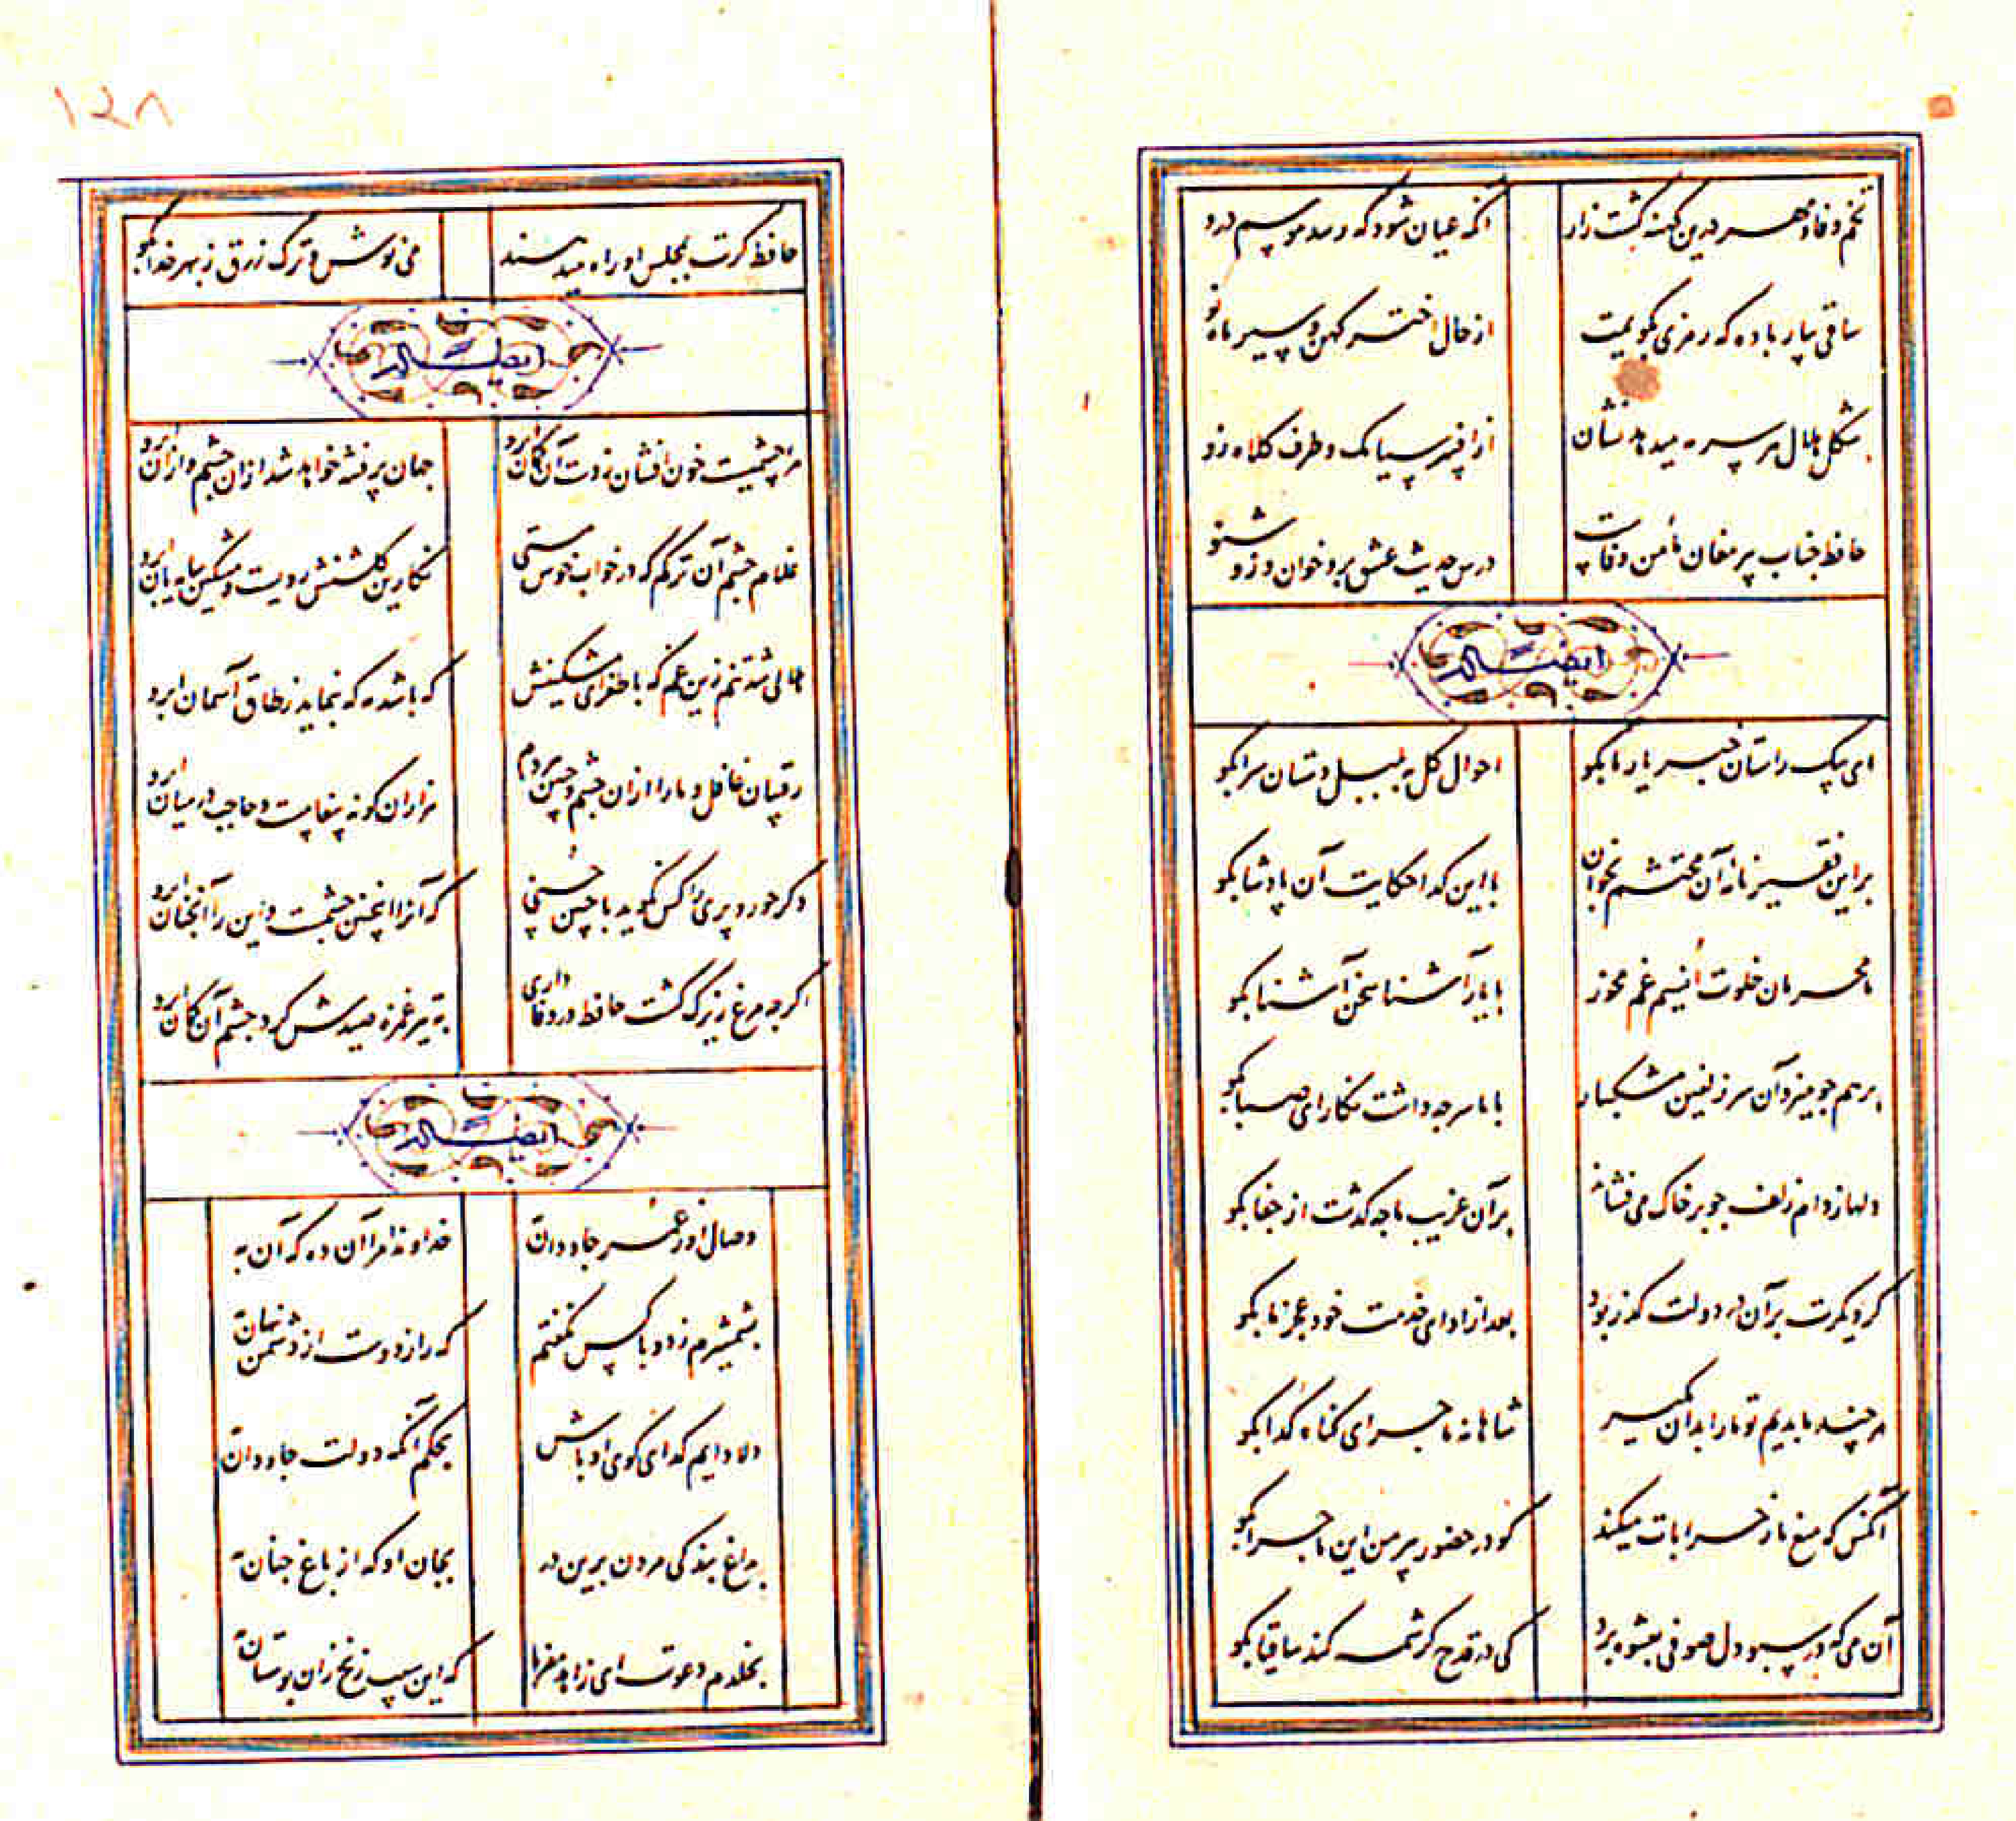 تخم وفا و مهر درین کهنه کشت زار آنگه عیان شود که رسد موسم درو
ساقی بیار باده که رمزی بگویمت از حال اختر کهن و سیر ماه نو
شکل هلال هر سر مه میدهد نشان از افسر سیامک و طرف کلاه زو
حافظ جناب پیر مغان مأمن وفاست درس حدیث عشق برو خوان وزو شنو
ایضا له
ای پیک راستان خبر یار ما بگو احوال گل به بلبل دستان سرا بگو
بر این فقیر نامهٔ آن محتشم بخوان با این گدا حکایت آن پادشا بگو
ما محرمان خلوت انسیم غم مخور با یار آشنا سخن آشنا بگو
برهم چو میزد آن سر زلفین مشکبار با ما سر چه داشت نگار ای صبا بگو
دلها ز دام زلف چو بر خاک می فشاند بر آن غریب ما چه گذشت از جفا بگو
گر دیگرت بر آن در دولت گذر بود بعد از ادای خدمت خود عجز ما بگو
هر چند ما بدیم تو ما را بدان مگیر شاهانه ماجرای گناه گدا بگو
آنکس که منع ما ز خرابات میکند گو در حضور پیر من این ماجرا بگو
آن می که در سبو دل صوفی بعشوه برد کی در قدح کرشمه کند ساقیا بگو
۱۲۸
حافظ گرت بمجلس او راه میدهند می نوش و ترک زرق ز بهر خدا بگو
ایضا له
مرا چشمیست خون افشان ز دست آن کمان ابرو جهان پر فتنه خواهد شد از ان چشم و از ان ابرو
غلام چشم آن ترکم که در خواب خوش مستی نگارین گلشنش رویست و مشکین سایه بان ابرو
هلالی شد تنم زین غم که با طغرای مشکینش که باشد مه که بنماید ز طاق آسمان ابرو
رقیبان غافل و ما را از ان چشم و جبین هر دم هزاران گونه پیغامست و حاجب در میان ابرو
دگر حور و پری را کس نگوید با چنین حسنی که آنرا اینچنین چشمست و این را آنچنان ابرو
اگر چه مرغ زیرک گشت حافظ در وفاداری به تیر غمزه صیدش کرد چشم آن کمان ابرو
ایضا له
وصال او ز عمر جاودان به خداوندا مرا آن ده که آن به
بشمشیرم زد و با کس نگفتم که راز دوست از دشمن نهان به
دلا دایم گدای کوی او باش بحکم آنکه دولت جاودان به
بداغ بندگی مردن برین در بجان او که از باغ جنان به
بخلدم دعوت ای زاهد مفرما که این سیب زنخ زان بوستان به